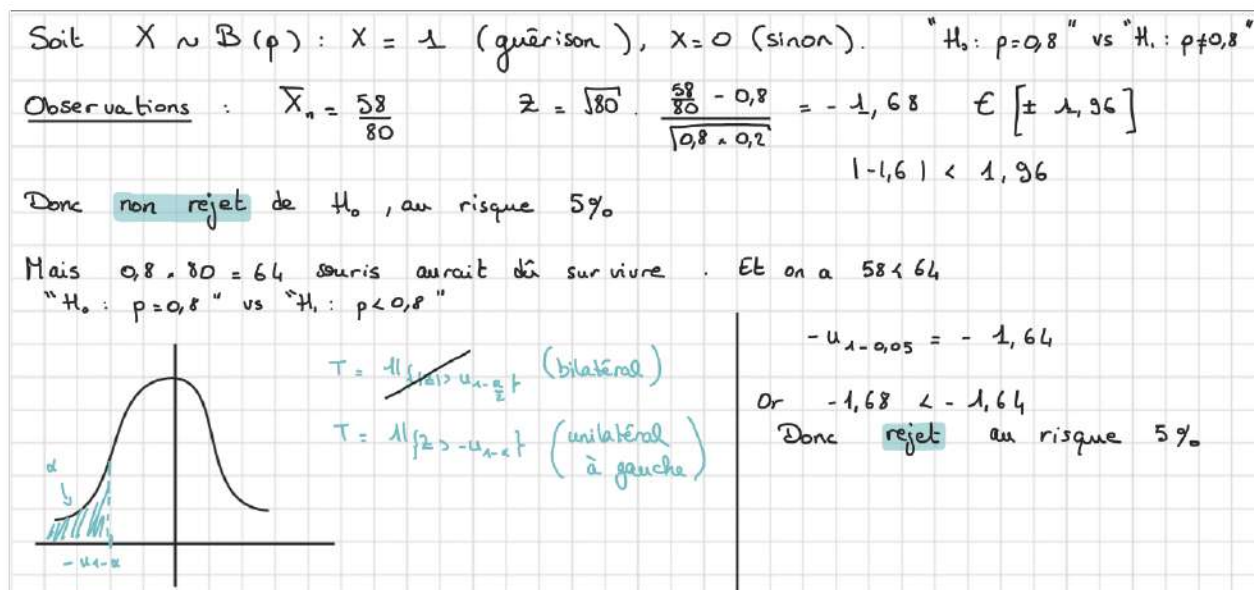 Soit X ~ B(p) : X = 1 (guérison), X=0 (sinon). "H₀ : p=0,8" vs "H₁ : p≠0,8"
Observations : X̄ₙ = 58/80 Z = √80 . (58/80 - 0,8)/√(0,8 × 0,2) = - 1,68 ∈ [± 1,96]
|-1,6| < 1,96
Donc non rejet de H₀, au risque 5%
Mais 0,8 × 80 = 64 souris aurait dû survivre . Et on a 58 < 64
"H₀ : p=0,8" vs "H₁ : p<0,8"
T = 1{|Z| > u_{1-α/2}} (bilatéral)
T = 1{Z > -u_{1-α}} (unilatéral à gauche)
α
-u_{1-α}
-u_{1-0,05} = - 1,64
Or -1,68 < - 1,64
Donc rejet au risque 5%